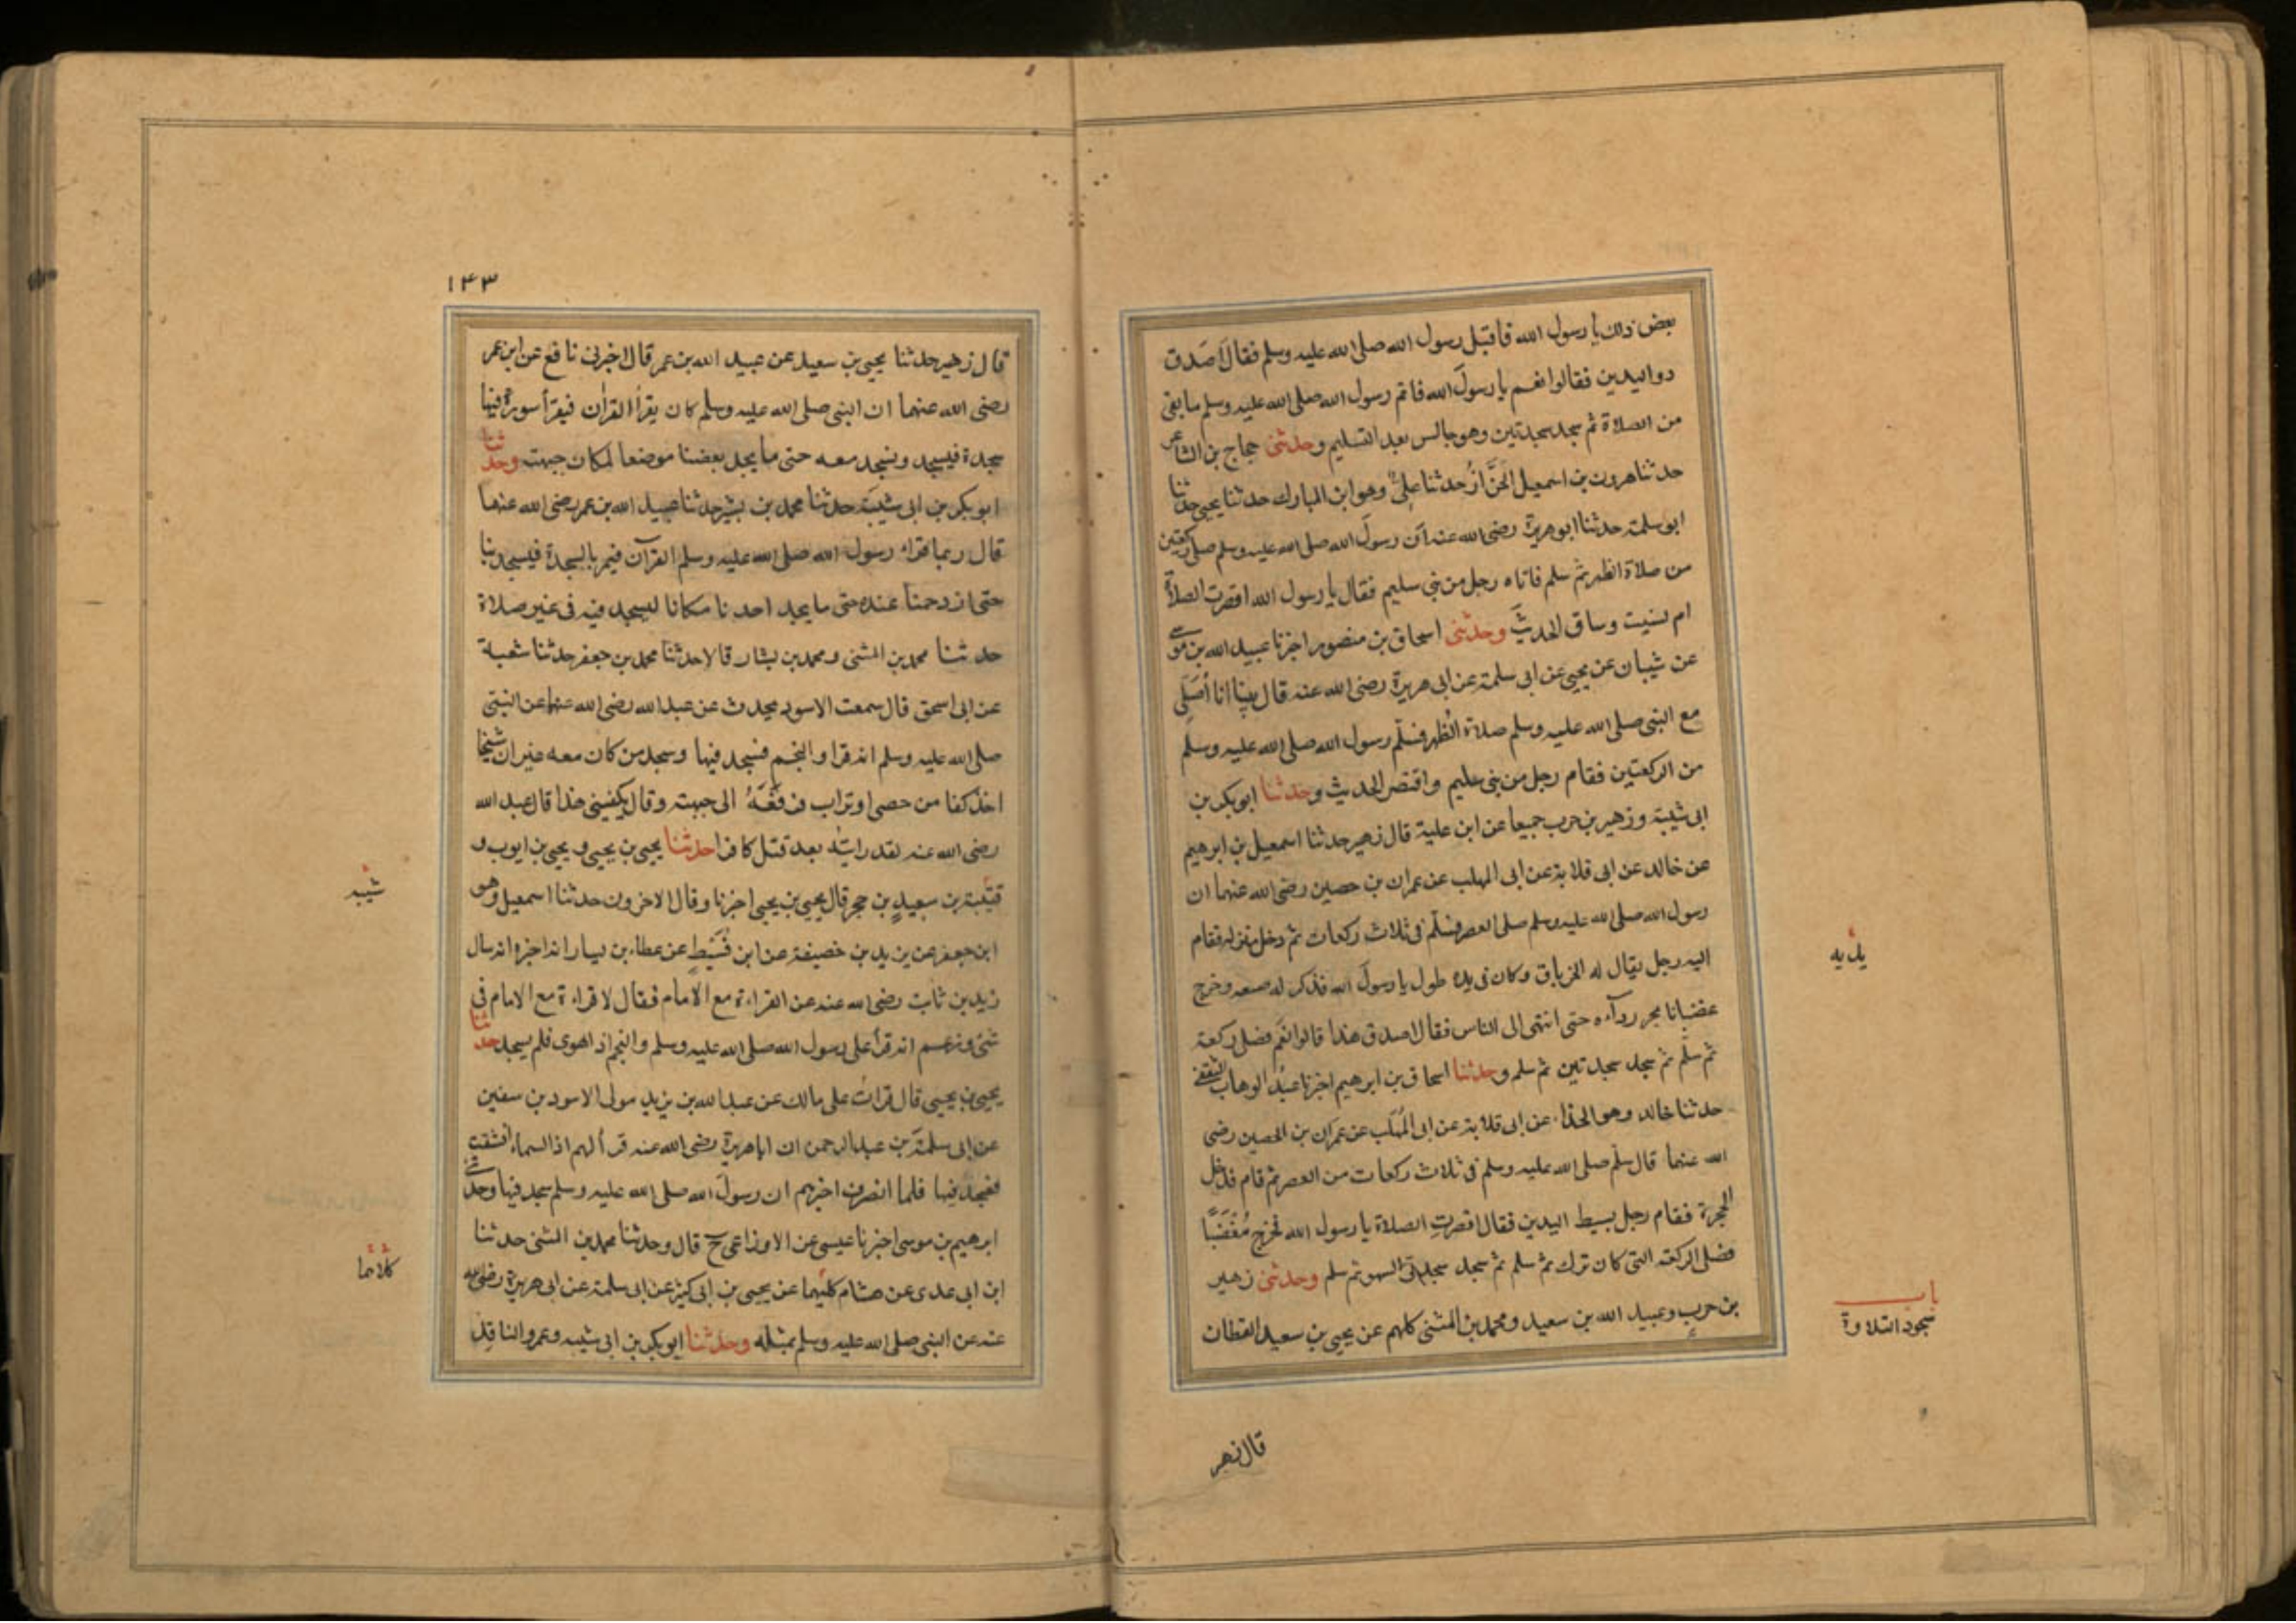 بعض ذلك يا رسول الله فاقبل رسول الله صلى الله عليه وسلم فقال اَصَدق
ذواليدين فقالوا نعم يا رسولَ الله فاتم رسول الله صلى الله عليه وسلم ما بقى
من الصلاة ثم سجد سجدتين وهو جالس بعد التسليم وحدثنى حجاج بن الشاعر
حدثنا هرون بن اسمعيل الخزَّازُ حدثنا علىٌّ وهو ابن المبارك حدثنا يحيى حدثنا
ابو سلمة حدثنا ابو هريرة رضى الله عنه اَن رسولَ الله صلى الله عليه وسلم صلى ركعتين
من صلاة الظهر ثم سلم فاتاه رجل من بنى سليم فقال يا رسول الله اقصرت الصلاة
ام نسيت وساق الحديثَ وحدثنى اسحاق بن منصور اخبرنا عبيد الله بن موسى
عن شيبان عن يحيى عن ابى سلمة عن ابى هريرة رضى الله عنه قال بينا انا أُصَلِّى
مع النبى صلى الله عليه وسلم صلاة الظهر فسلّم رسول الله صلى الله عليه وسلم
من الركعتين فقام رجل من بنى سليم واقتصر الحديث وحدثنا ابو بكر بن
ابى شيبة وزهير بن حرب جميعا عن ابن علية قال زهير حدثنا اسمعيل بن ابرهيم
عن خالد عن ابى قلابة عن ابى المهلب عن عمران بن حصين رضى الله عنهما ان
رسول الله صلى الله عليه وسلم صلى العصر فسلّم فى ثلاث ركعات ثم دخل منزله فقام
اليه رجل يقال له الخرباق وكان فى يده طول يا رسولَ الله فذكر له صنعه وخرج
يديه
غضبانا يجر ردآءه حتى انتهى الى الناس فقال اصدق هذا قالوا نعَم فصلى ركعة
ثم سلّم ثم سجد سجدتين ثم سلم وحدثنا اسحاق بن ابرهيم اخبرنا عبدُ الوهاب الثقفى
حدثنا خالد وهو الحذاء عن ابى قلابة عن ابى المُهَلّب عن عمران بن الحصين رضى
الله عنهما قال سلّم صلى الله عليه وسلم فى ثلاث ركعات من العصر ثم قام فدخل
الحجرة فقام رجل بسيط اليدين فقال اقصرتِ الصلاة يا رسول الله فخرج مُغْضَبًا
فصلى الركعة التى كان ترك ثم سلم ثم سجد سجدتى السهو ثم سلم وحدثنى زهير
باب
سجود التلاوة
بن حرب وعبيد الله بن سعيد ومحمد بن المثنى كلهم عن يحيى بن سعيد القطان
قال زهير
١٤٣
قال زهير حدثنا يحيى بن سعيد عن عبيد الله بن عمر قال اخبرنى نافع عن ابن عمر
رضى الله عنهما ان النبى صلى الله عليه وسلم كان يقرأ القران فيقرأ سورة فيها
سجدة فيسجد ونسجد معه حتى ما يجد بعضنا موضعا لمكان جبهته وحدثنا
ابو بكر بن ابى شيبَة حدثنا محمد بن بشر حدثنا عبيد الله بن عمر رضى الله عنهما
قال ربما قراء رسول الله صلى الله عليه وسلم القرآن فيمر بالسجدة فيسجد بنا
حتى ازدحمنا عنده حتى ما يجد احدنا مكانا ليسجد فيه فى غير صلاة
حدثنا محمد بن المثنى ومحمد بن بشار قالا حدثنا محمد بن جعفر حدثنا شعبة
عن ابى اسحق قال سمعت الاسود يحدث عن عبد الله رضى الله عنهما عن النبى
صلى الله عليه وسلم انه قرا والنجم فسجد فيها وسجد من كان معه غير ان شيخا
اخذ كفا من حصى او تراب فرفَعَهُ الى جبهته وقال يكفينى هذا قال عبد الله
رضى الله عنه لقد رايته بعد قتل كافرا حدثنا يحيى بن يحيى ويحيى بن ايوب و
قتيبة بن سعيدٍ بن حجر قال يحيى بن يحيى اخبرنا وقال الاخرون حدثنا اسمعيل وهو
ابن جعفر عن يزيد بن خصيفة عن ابن قُسَيْطٍ عن عطاء بن يسار انه اخبره انه سال
زيد بن ثابت رضى الله عنه عن القراءة مع الامام فقال لا قراءة مع الامام فى
شئ وزعم انه قرأ على رسول الله صلى الله عليه وسلم والنجم اذا هوى فلم يسجد حدثنا
يحيى بن يحيى قال قرات على مالك عن عبد الله بن يزيد مولى الاسود بن سفين
عن ابى سلمة بن عبد الرحمن ان اباهريرة رضى الله عنه قرأ لهم اذا السماء انشقت
فسجد فيها فلما انصرف اخبرهم ان رسولَ الله صلى الله عليه وسلم سجد فيها وحدثنى
ابرهيم بن موسى اخبرنا عيسى عن الاوزاعى ح قال وحدثنا محمد بن المثنى حدثنا
كلاهما
ابن ابى عدى عن هشام كليهما عن يحيى بن ابى كثير عن ابى سلمة عن ابى هريرة رضى الله
عنه عن النبى صلى الله عليه وسلم بمثله وحدثنا ابو بكر بن ابى شيبه وعمرو الناقد